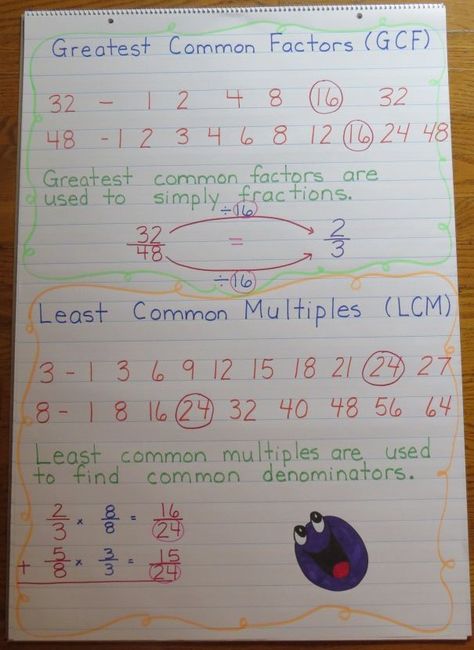 Greatest Common Factors (GCF)
32 - 1 2 4 8 16 32
48 - 1 2 3 4 6 8 12 16 24 48
Greatest common factors are
used to simply fractions.
÷16
32/48 = 2/3
÷16
Least Common Multiples (LCM)
3 - 1 3 6 9 12 15 18 21 24 27
8 - 1 8 16 24 32 40 48 56 64
Least common multiples are used
to find common denominators.
2/3 × 8/8 = 16/24
+ 5/8 × 3/3 = 15/24